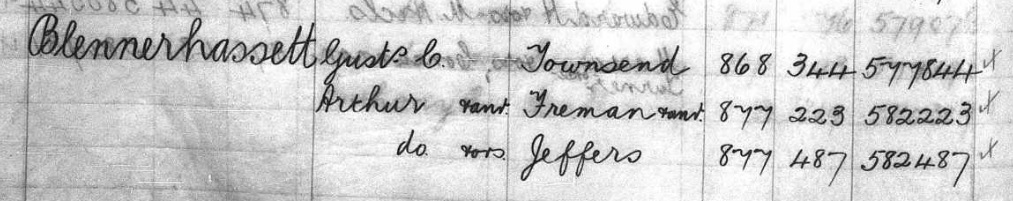 Blennerhassett Gusts. C. Townsend 868 344 577844
Arthur &anr. Freman &anr. 877 223 582223
do &ors. Jeffers 877 487 582487